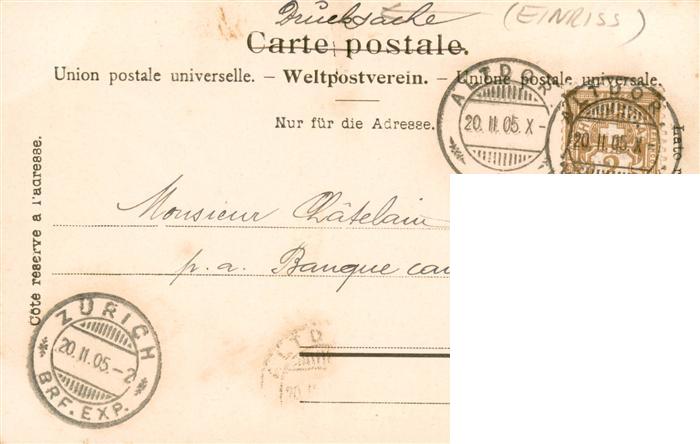 Drucksache (EINRISS)
Carte postale.
Union postale universelle. – Weltpostverein. – Unione postale universale.
Nur für die Adresse.
Côte réservé à l'adresse.
Lato
ALTDORF
20.II.05.X–
ALTDOR
20.II.05.X
2
Monsieur Châtelain
p. a. Banque
ZÜRICH
20.II.05.–2
BRF. EXP.
ALTD